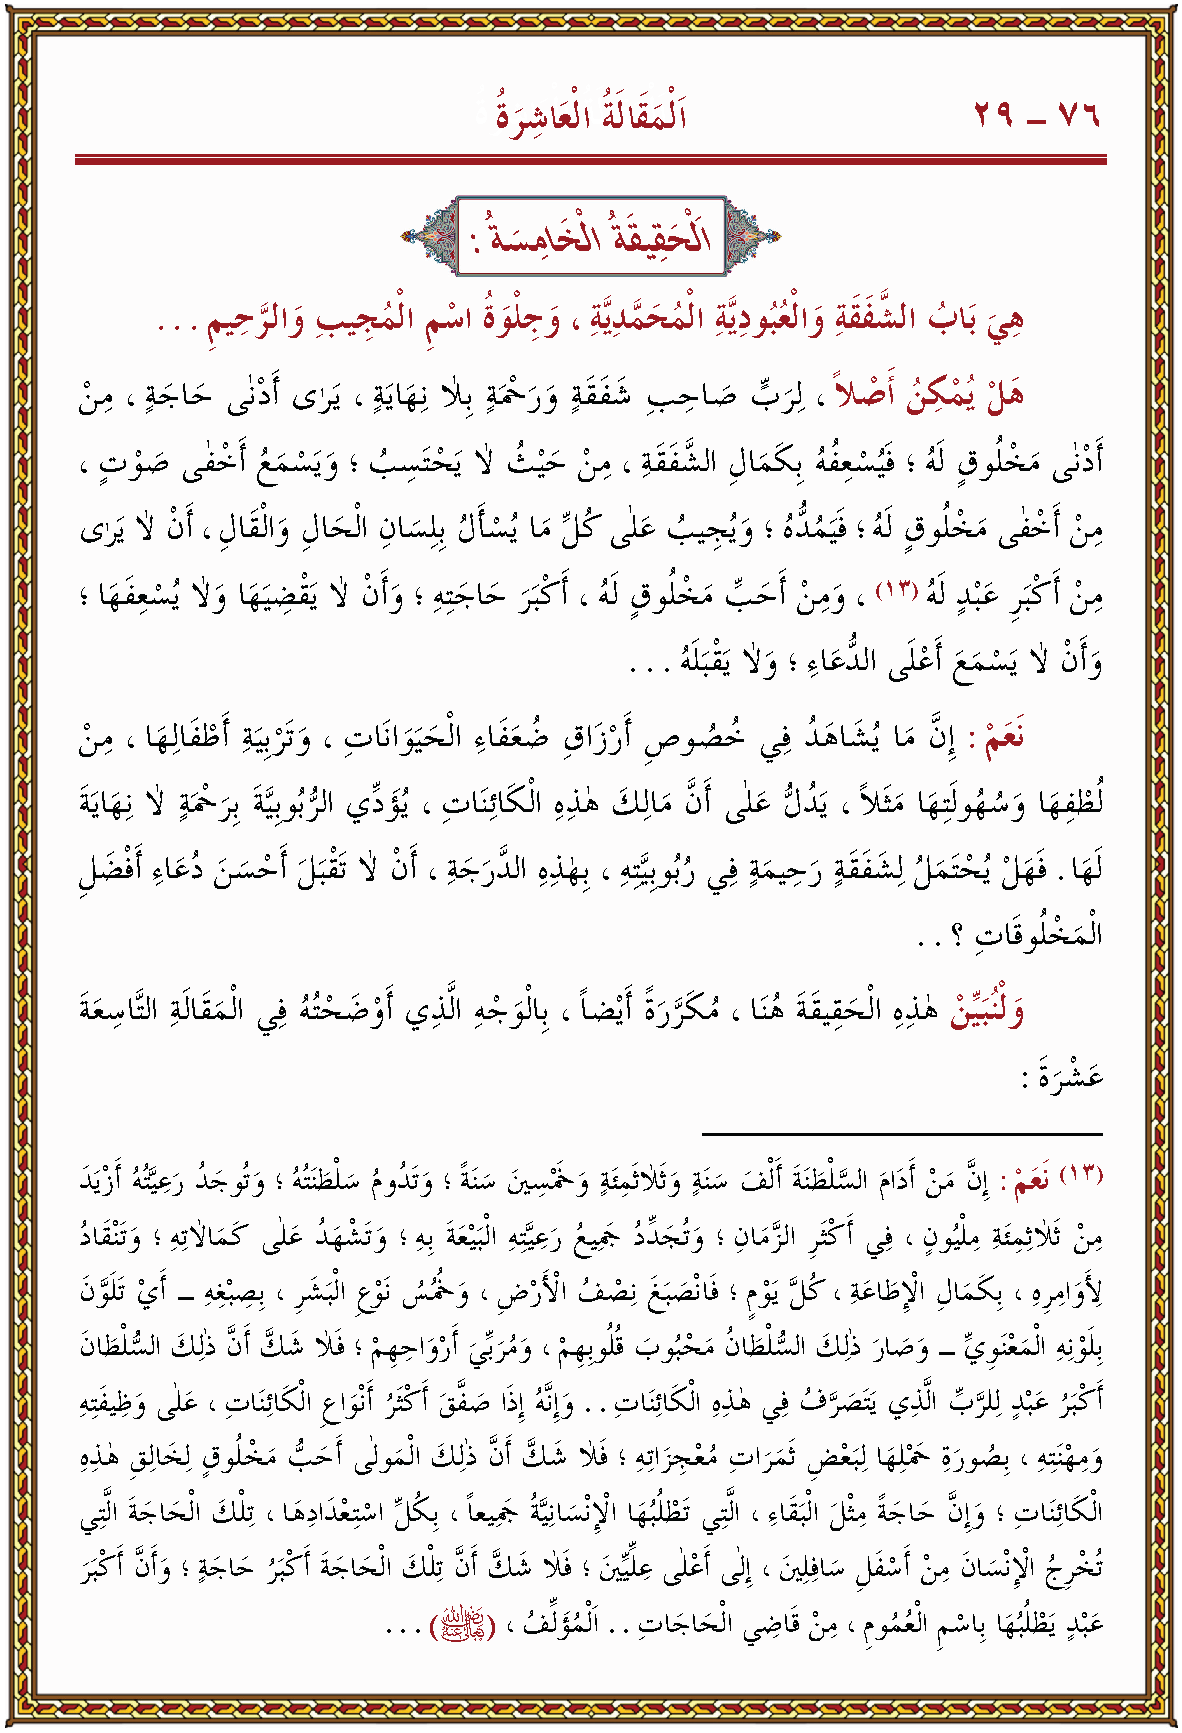 ٧٦ ـ ٢٩
اَلْمَقَالَةُ الْعَاشِرَةُ
اَلْحَقِيقَةُ الْخَامِسَةُ :
هِيَ بَابُ الشَّفَقَةِ وَالْعُبُودِيَّةِ الْمُحَمَّدِيَّةِ ، وَجِلْوَةُ اسْمِ الْمُجِيبِ وَالرَّحِيمِ . . .
هَلْ يُمْكِنُ أَصْلاً ، لِرَبٍّ صَاحِبِ شَفَقَةٍ وَرَحْمَةٍ بِلاٰ نِهَايَةٍ ، يَرٰى أَدْنٰى حَاجَةٍ ، مِنْ
أَدْنٰى مَخْلُوقٍ لَهُ ؛ فَيُسْعِفُهُ بِكَمَالِ الشَّفَقَةِ ، مِنْ حَيْثُ لاٰ يَحْتَسِبُ ؛ وَيَسْمَعُ أَخْفٰى صَوْتٍ ،
مِنْ أَخْفٰى مَخْلُوقٍ لَهُ ؛ فَيُمِدُّهُ ؛ وَيُجِيبُ عَلٰى كُلِّ مَا يُسْأَلُ بِلِسَانِ الْحَالِ وَالْقَالِ ، أَنْ لاٰ يَرٰى
مِنْ أَكْبَرِ عَبْدٍ لَهُ (١٣) ، وَمِنْ أَحَبِّ مَخْلُوقٍ لَهُ ، أَكْبَرَ حَاجَتِهِ ؛ وَأَنْ لاٰ يَقْضِيَهَا وَلاٰ يُسْعِفَهَا ؛
وَأَنْ لاٰ يَسْمَعَ أَعْلَى الدُّعَاءِ ؛ وَلاٰ يَقْبَلَهُ . . .
نَعَمْ : إِنَّ مَا يُشَاهَدُ فِي خُصُوصِ أَرْزَاقِ ضُعَفَاءِ الْحَيَوَانَاتِ ، وَتَرْبِيَةِ أَطْفَالِهَا ، مِنْ
لُطْفِهَا وَسُهُولَتِهَا مَثَلاً ، يَدُلُّ عَلٰى أَنَّ مَالِكَ هٰذِهِ الْكَائِنَاتِ ، يُؤَدِّي الرُّبُوبِيَّةَ بِرَحْمَةٍ لاٰ نِهَايَةَ
لَهَا . فَهَلْ يُحْتَمَلُ لِشَفَقَةٍ رَحِيمَةٍ فِي رُبُوبِيَّتِهِ ، بِهٰذِهِ الدَّرَجَةِ ، أَنْ لاٰ تَقْبَلَ أَحْسَنَ دُعَاءِ أَفْضَلِ
الْمَخْلُوقَاتِ ؟ . .
وَلْنُبَيِّنْ هٰذِهِ الْحَقِيقَةَ هُنَا ، مُكَرَّرَةً أَيْضاً ، بِالْوَجْهِ الَّذِي أَوْضَحْتُهُ فِي الْمَقَالَةِ التَّاسِعَةَ
عَشْرَةَ :
(١٣) نَعَمْ : إِنَّ مَنْ أَدَامَ السَّلْطَنَةَ أَلْفَ سَنَةٍ وَثَلاٰثَمِئَةٍ وَخَمْسِينَ سَنَةً ؛ وَتَدُومُ سَلْطَنَتُهُ ؛ وَتُوجَدُ رَعِيَّتُهُ أَزْيَدَ
مِنْ ثَلاٰثِمِئَةِ مِلْيُونٍ ، فِي أَكْثَرِ الزَّمَانِ ؛ وَتُجَدِّدُ جَمِيعُ رَعِيَّتِهِ الْبَيْعَةَ بِهِ ؛ وَتَشْهَدُ عَلٰى كَمَالاٰتِهِ ؛ وَتَنْقَادُ
لِأَوَامِرِهِ ، بِكَمَالِ الْإِطَاعَةِ ، كُلَّ يَوْمٍ ؛ فَانْصَبَغَ نِصْفُ الْأَرْضِ ، وَخُمُسُ نَوْعِ الْبَشَرِ ، بِصِبْغِهِ ـ أَيْ تَلَوَّنَ
بِلَوْنِهِ الْمَعْنَوِيِّ ـ وَصَارَ ذٰلِكَ السُّلْطَانُ مَحْبُوبَ قُلُوبِهِمْ ، وَمُرَبِّيَ أَرْوَاحِهِمْ ؛ فَلاٰ شَكَّ أَنَّ ذٰلِكَ السُّلْطَانَ
أَكْبَرُ عَبْدٍ لِلرَّبِّ الَّذِي يَتَصَرَّفُ فِي هٰذِهِ الْكَائِنَاتِ . . وَإِنَّهُ إِذَا صَفَّقَ أَكْثَرُ أَنْوَاعِ الْكَائِنَاتِ ، عَلٰى وَظِيفَتِهِ
وَمِهْنَتِهِ ، بِصُورَةِ حَمْلِهَا لِبَعْضِ ثَمَرَاتِ مُعْجِزَاتِهِ ؛ فَلاٰ شَكَّ أَنَّ ذٰلِكَ الْمَوْلٰى أَحَبُّ مَخْلُوقٍ لِخَالِقِ هٰذِهِ
الْكَائِنَاتِ ؛ وَإِنَّ حَاجَةً مِثْلَ الْبَقَاءِ ، الَّتِي تَطْلُبُهَا الْإِنْسَانِيَّةُ جَمِيعاً ، بِكُلِّ اسْتِعْدَادِهَا ، تِلْكَ الْحَاجَةَ الَّتِي
تُخْرِجُ الْإِنْسَانَ مِنْ أَسْفَلِ سَافِلِينَ ، إِلٰى أَعْلٰى عِلِّيِّينَ ؛ فَلاٰ شَكَّ أَنَّ تِلْكَ الْحَاجَةَ أَكْبَرُ حَاجَةٍ ؛ وَأَنَّ أَكْبَرَ
عَبْدٍ يَطْلُبُهَا بِاسْمِ الْعُمُومِ ، مِنْ قَاضِي الْحَاجَاتِ . . اَلْمُؤَلِّفُ ، (رَضِيَ اللهُ تَعَالٰى عَنْهُ) . . .